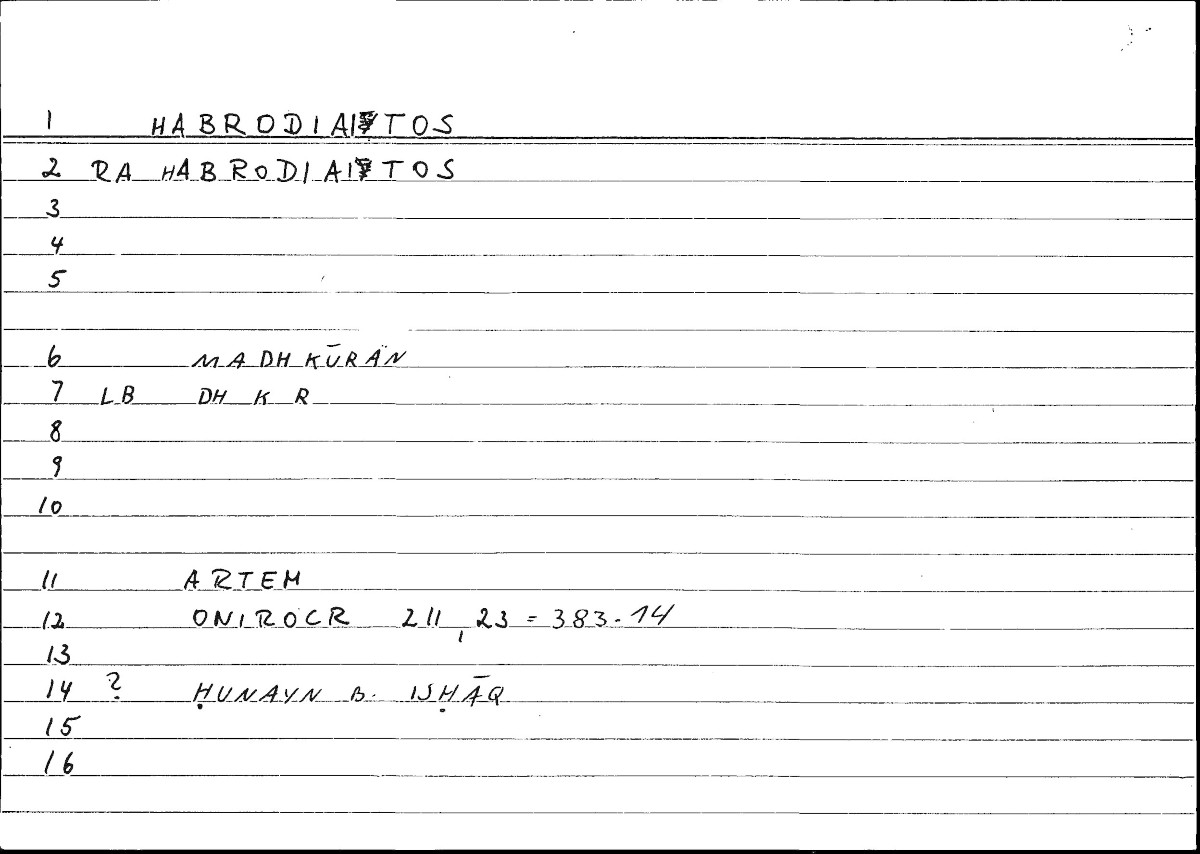 1 HABRODIAITOS
2 RA HABRODIAITOS
3
4
5
6 MADHKŪRĀN
7 LB DH K R
8
9
10
11 ARTEM
12 ONIROCR 211,23 = 383.14
13
14 ? ḤUNAYN B. ISḤĀQ
15
16